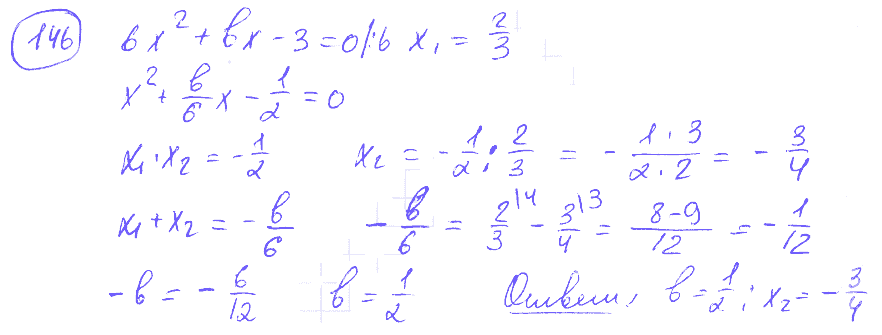 146 6x² + bx - 3 = 0 |:6 x₁ = 2/3
x² + b/6 x - 1/2 = 0
x₁ · x₂ = -1/2 x₂ = -1/2 : 2/3 = - (1 · 3)/(2 · 2) = - 3/4
x₁ + x₂ = - b/6 - b/6 = 2/3 |4 - 3/4 |3 = (8-9)/12 = - 1/12
-b = - 6/12 b = 1/2 Ответ: b = 1/2; x₂ = - 3/4